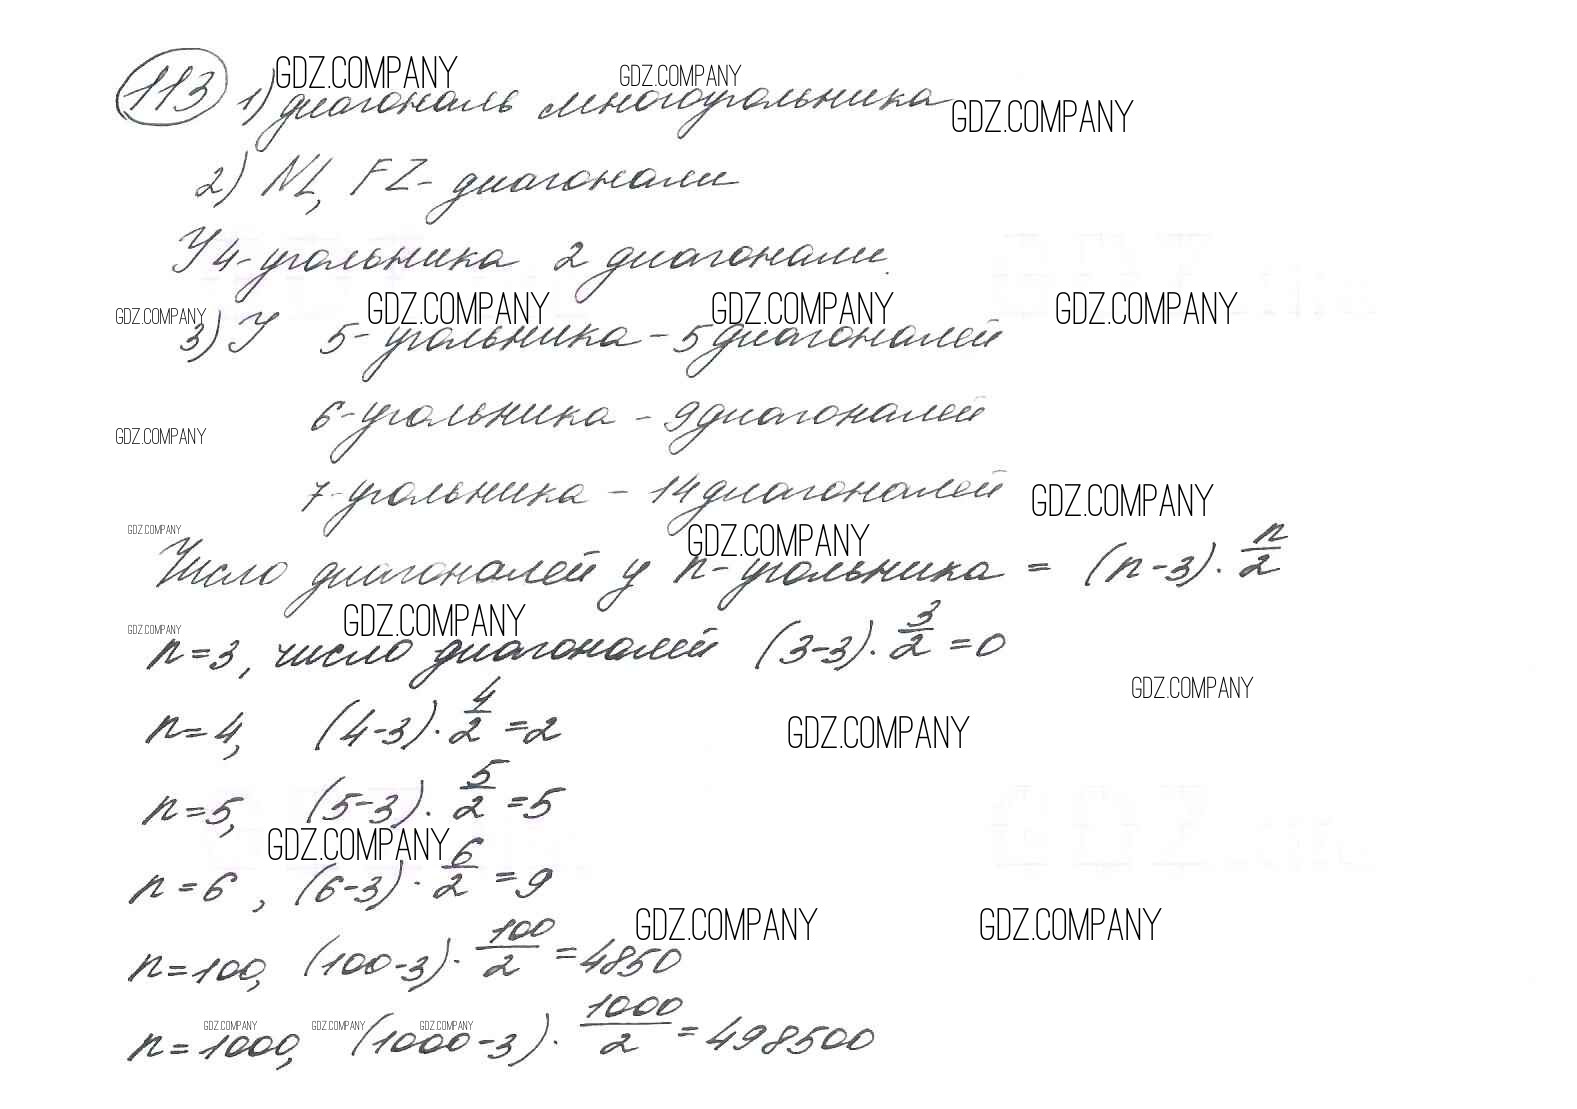 113 1) диагональ многоугольника
GDZ.COMPANY GDZ.COMPANY GDZ.COMPANY
2) NL, FZ - диагонали
У 4-угольника 2 диагонали.
GDZ.COMPANY GDZ.COMPANY GDZ.COMPANY GDZ.COMPANY
3) У 5-угольника - 5 диагоналей
6-угольника - 9 диагоналей
GDZ.COMPANY
7-угольника - 14 диагоналей
GDZ.COMPANY
GDZ.COMPANY GDZ.COMPANY
Число диагоналей у n-угольника = (n-3)·n/2
GDZ.COMPANY GDZ.COMPANY
n=3, число диагоналей (3-3)·3/2=0
GDZ.COMPANY
n=4, (4-3)·4/2=2
GDZ.COMPANY
n=5, (5-3)·5/2=5
GDZ.COMPANY
n=6, (6-3)·6/2=9
GDZ.COMPANY GDZ.COMPANY
n=100, (100-3)·100/2=4850
GDZ.COMPANY GDZ.COMPANY GDZ.COMPANY
n=1000, (1000-3)·1000/2=498500